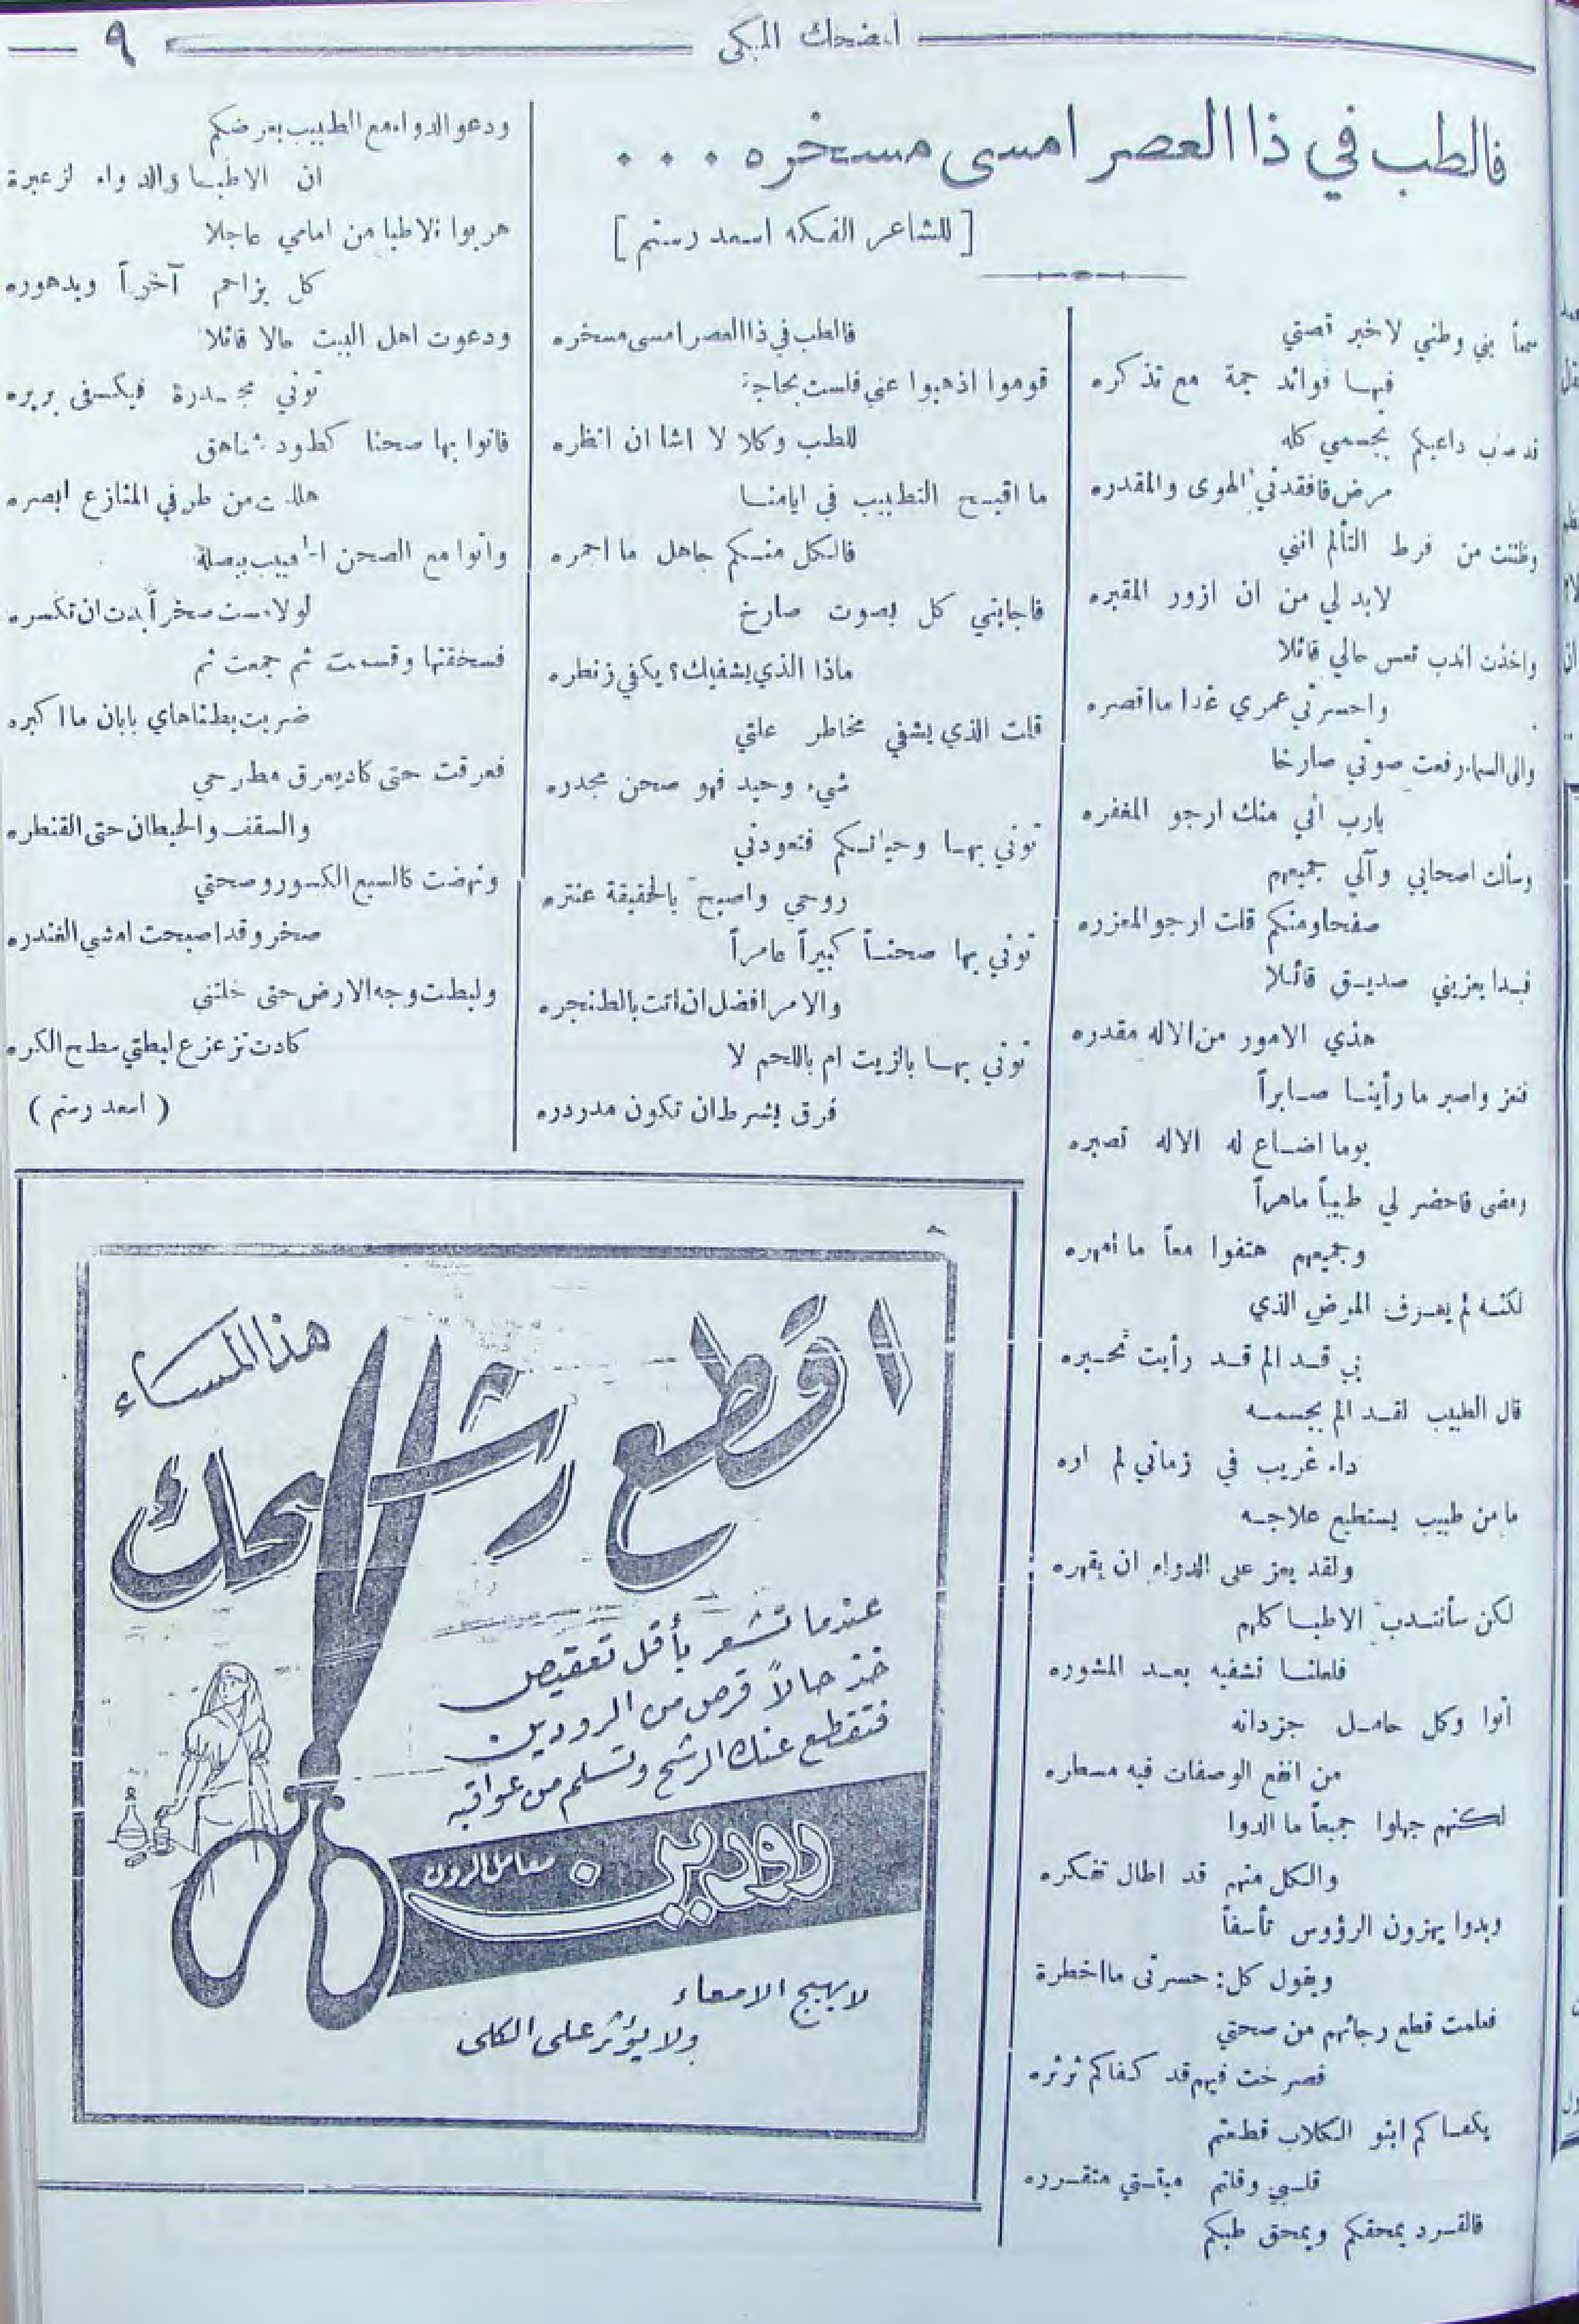 المضحك المبكي
٩
فالطب في ذا العصر امسى مسخره . . .
[ للشاعر الفكه اسعد رستم ]
سمعاً بني وطني لاخبر قصتي
فيها فوائد جمة مع تذكره
داعيكم بجسمي كله
مرض فافقدني الهوى والمقدره
وظننت من فرط التألم انني
لابد لي من ان ازور المقبره
واخذت اندب تعس حالي قائلا
واحسرتي عمري غدا ما اقصره
والى السما رفعت صوتي صارخا
يارب اني منك ارجو المغفره
وسألت اصحابي وآلي جميعهم
صفحا ومنكم قلت ارجو المعزره
فبدا يعزيني صديق قائلا
هذي الامور من الاله مقدره
فتعز واصبر ما رأينا صابراً
يوما اضاع له الاله تصبره
ومضى فاحضر لي طبيباً ماهراً
وجميعهم هتفوا معاً ما أمهره
لكنه لم يعرف المرض الذي
بي قد الم قد رأيت تحيره
قال الطبيب لقد الم بجسمه
داء غريب في زماني لم اره
ما من طبيب يستطيع علاجه
ولقد يعز على الدواء ان يقهره
لكن سأنتدب الاطبا كلهم
فلعلنا نشفيه بعد المشوره
أتوا وكل حامل جزدانه
من انفع الوصفات فيه مسطره
لكنهم جهلوا جميعاً ما الدوا
والكل منهم قد اطال تفكره
وبدوا يهزون الرؤوس تأسفاً
ويقول كل: حسرتى ما اخطرة
فعلمت قطع رجائهم من صحتي
فصرخت فيهم قد كفاكم ثرثره
يكفاكم ابنو الكلاب قطعتم
قلبي وقلتم ميتتي متقرره
فالقرد يمحقكم ويمحق طبكم
فالطب في ذا العصر امسى مسخره
قوموا اذهبوا عني فلست بحاجة
للطب وكلا لا اشا ان انظره
ما اقبح التطبيب في ايامنا
فالكل منكم جاهل ما احمره
فاجابني كل بصوت صارخ
ماذا الذي يشفيك؟ يكفي زنطره
قلت الذي يشفي مخاطر علتي
شيء وحيد فهو صحن مجدره
توني بها وحياتكم فتعودني
روحي واصبح بالحقيقة عنتره
توني بها صحناً كبيراً عامراً
والامر افضل ان اتت بالطنجره
توني بها بالزيت ام باللحم لا
فرق بشرط ان تكون مدردره
ودعوا الدواء مع الطبيب بعرضكم
ان الاطبا والدواء لزعبرة
هربوا الاطبا من امامي عاجلا
كل يزاحم آخراً ويدهوره
ودعوت اهل البيت حالا قائلا
توني مجدرة فيكفى بربره
فاتوا بها صحنا كطود شاهق
هللت من طرفي المنازع ابصره
واتوا مع الصحن الحبيب ببصلة
لولامست صخراً بدت ان تكسره
فسخقتها وقسمت ثم جمعت ثم
ضربت بطناهاي بابان ما اكبره
فعرقت حتى كاد يعرق مطرحي
والسقف والحيطان حتى القنطره
ونهضت كالسبع الكسور وصحتي
صخر وقد اصبحت امشي الغندره
ولبطت وجه الارض حتى خلتني
كادت تزعزع لبطتي سطح الكره
( اسعد رستم )
اقطع رشحك
هذا المساء
عندما تشعر بأقل تعقيص
خذ حالاً قرص من الرودين
فتقطع عنك الرشح وتسلم من عواقبه
رودين
معامل الرون
لا يهيج الامعاء
ولا يؤثر على الكلى